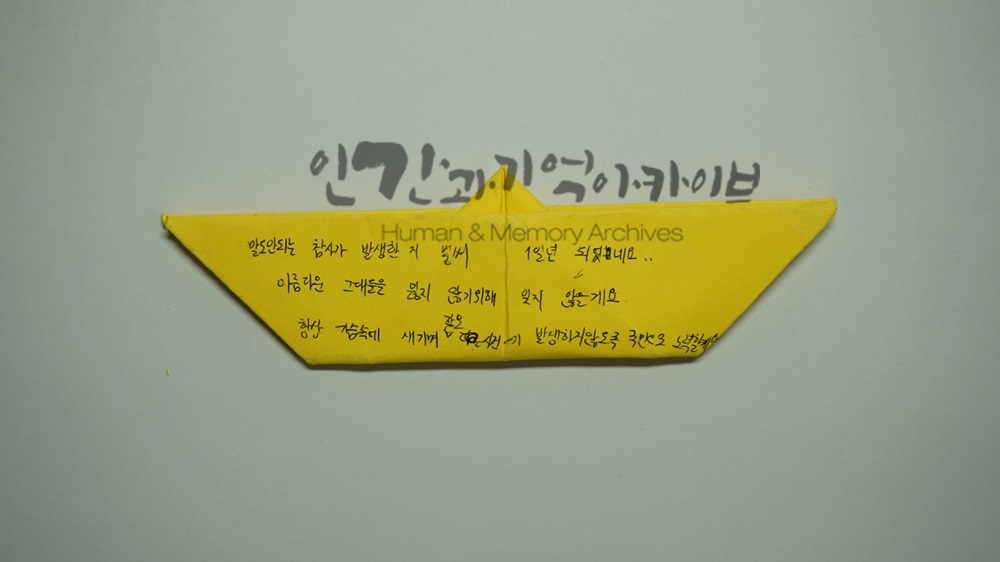 인간과기억아카이브
Human & Memory Archives
말도안되는 참사가 발생한 지 벌써 1일년 되었네요..
아름다운 그대들을 잃지 않기위해 잊지 않을게요.
항상 가슴속에 새기며 같은 사건이 발생하지않도록 국민으로 노력할게요